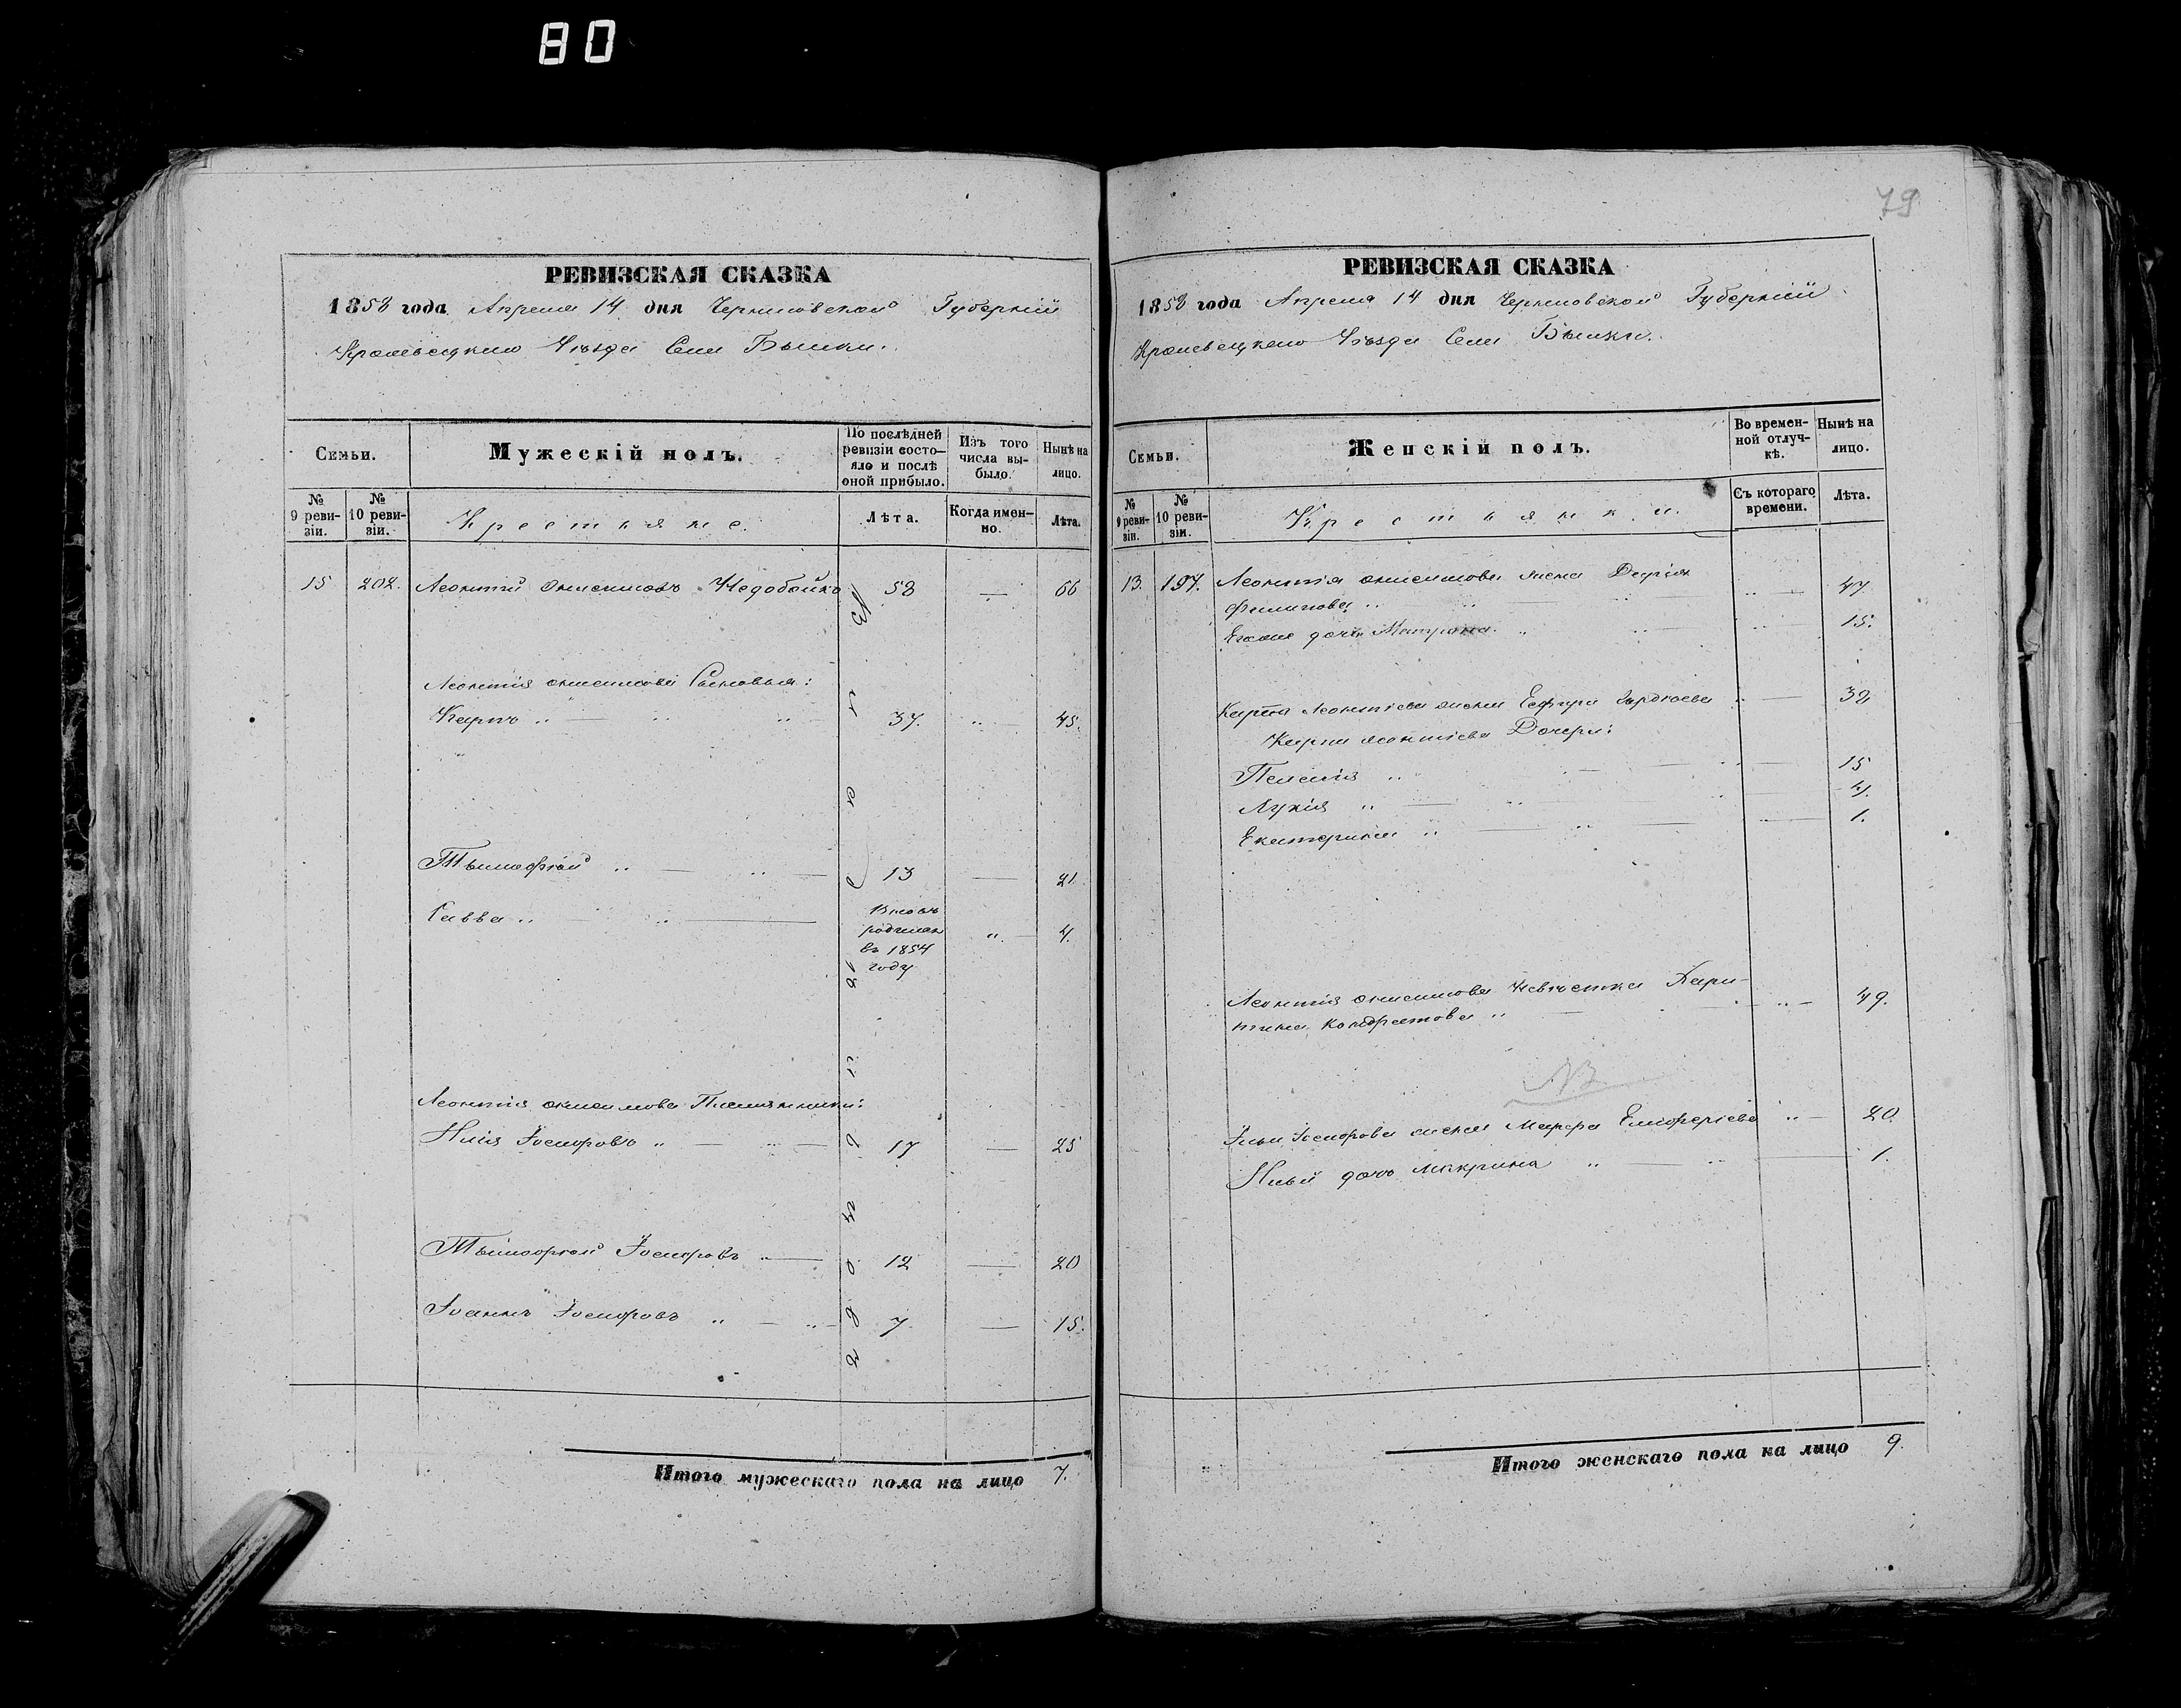 80
РЕВИЗСКАЯ СКАЗКА
1858 года Апреля 14 дня Черниговской Губерніи
Кролевецкаго Уѣзда Села
Семьи.
Мужескій полъ.
По послѣдней ревизіи состояло и послѣ оной прибыло.
Изъ того числа выбыло.
Нынѣ на лицо.
№ 9 ревизіи.
№ 10 ревизіи.
Крестьяне.
Лѣта.
Когда именно.
Лѣта.
15 202. Леонтій Онисимовъ Недобойко 58 — 66
Леонтія Онисимова Сыновья:
Карпъ „ — „ „ 37. „ — 45.
Тымофѣй „ — „ — 13 — 21.
Савва „ — „ — Вновь
рожденъ „ — 4.
въ 1854
году
Леонтія Онисимова Племянники:
Илія Іосифовъ „ — „ — 17 — 25
Тымофѣй Іосифовъ „ — 12 — 20
Іоаннъ Іосифовъ „ — „ — 7 — 15.
Итого мужескаго пола на лицо 7.
79
РЕВИЗСКАЯ СКАЗКА
1858 года Апреля 14 дня Черниговской Губерніи
Кролевецкаго Уѣзда Села
Семьи.
Женскій полъ.
Во временной отлучкѣ.
Нынѣ на лицо.
№ 9 ревизіи.
№ 10 ревизіи.
Крестьянки.
Съ котораго времени.
Лѣта.
13. 197. Леонтія Онисимова жена
Филипова „ „ — 47.
Егоже дочь Матрона „ — 15.
Карпа Леонтіева жена — 38
Карпа Леонтіева Дочери:
Пелагія „ — 15
Лукія „ — „ — 4.
Екатерина „ — „ — 1.
Леонтія Онисимова невѣстка Хари-
тина Кондратова „ — „ — 49.
NB
Ильи Іосифова жена Марфа Елиферіева „ — 20.
Ильи дочь Макрина „ — „ — 1.
Итого женскаго пола на лицо 9.